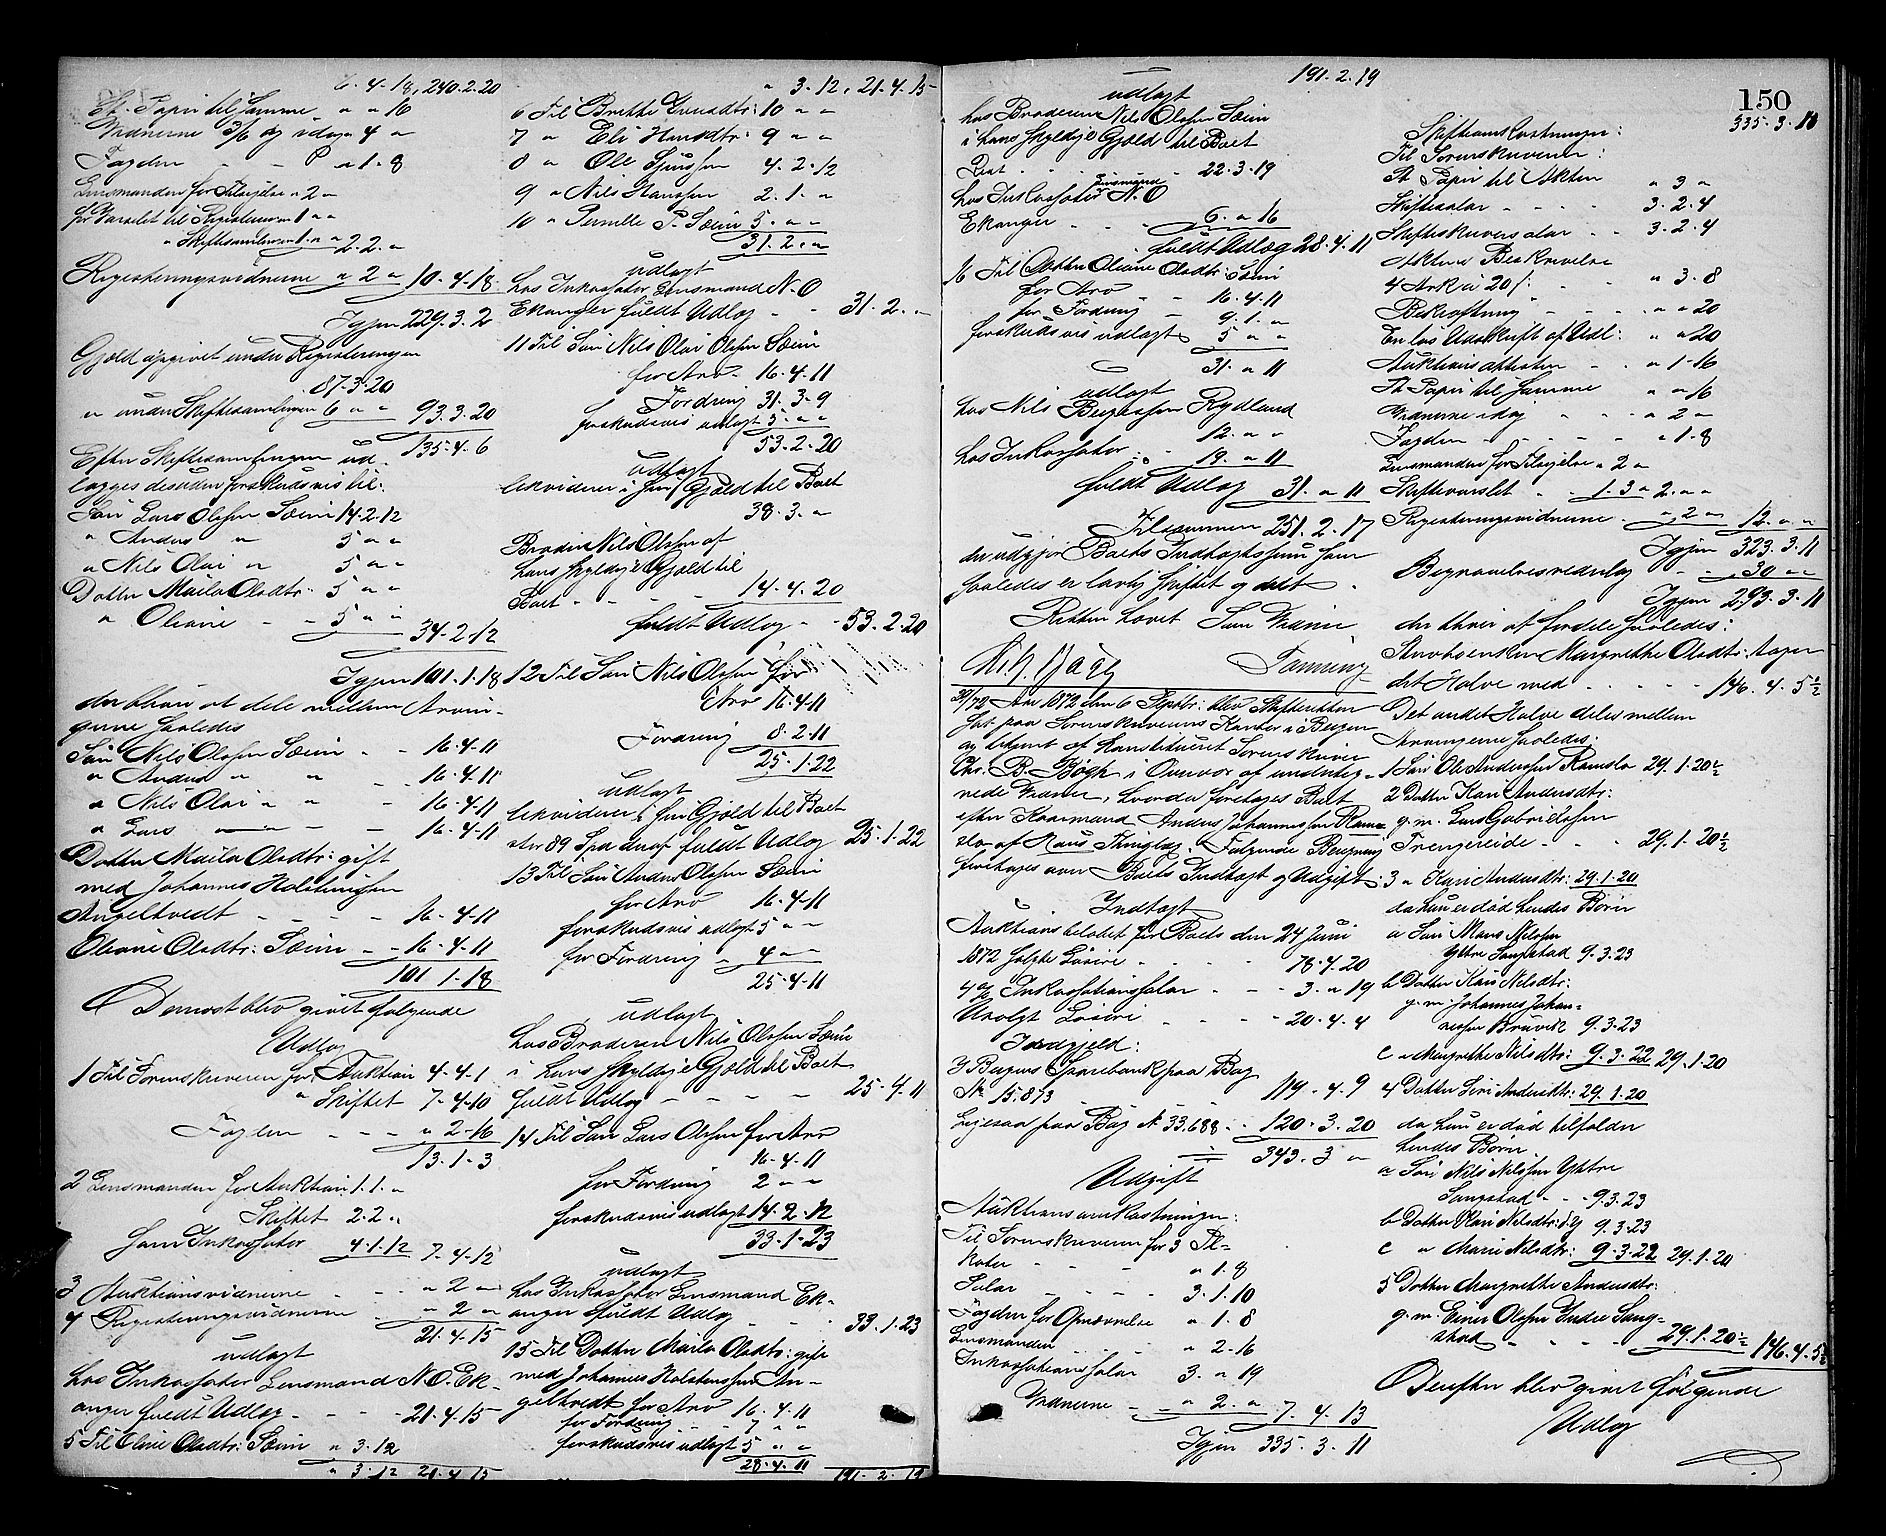 6. 4. 18, 240. 2. 20
St. Papir til Samme " " 16
Vidnerne 3/6 og idag " 4 "
Fogden - - " 1. 8
Lensmanden for Tilsigelse " 2 "
for Varslet til Registreringen 1 " "
" Skiftesamlingen 1. " " 2. 2. "
Registeringsvidnerne " 2 " 10. 4. 18
Igjen 229. 3. 2
Gjæld opgivet under Registeringen
87. 3. 20
" under Skiftesamlingen 6 " " 93. 3. 20
135. 4. 6
Efter Skiftesamlingen ud-
lægges desuden forskudsvis til:
Søn Lars Olsen Sæim 14. 2. 12
" Anders " 5 " "
" Nils Olai " 5 " "
Datter Maila Olsdtr: 5 " "
" Oliane - - 5 " "
34. 2. 12
Igjen 101. 1. 18
der bliver at dele mellem Arvin-
gerne saaledes
Søn Nils Olsen Sæim - - 16. 4. 11
" Anders " " - 16. 4. 11
" Nils Olai " " - 16. 4. 11
" Lars " - - 16. 4. 11
Datter Maila Olsdtr: gift
med Johannes Holstensen
Angeltvedt - - - - 16. 4. 11
Oliane Olsdtr: Sæim - - 16. 4. 11
101. 1. 18
Dernæst blev givet følgende
Udlæg
1 Til Sorenskriveren for Auktion 4. 4. 1
" Skiftet 7. 4. 10
Fogden - - - " 2. 16
13. 1. 3
2 Lensmanden for Auktion 1. 1. "
Skiftet 2. 2. "
Som Inkassator 4. 1. 12 7. 4. 12
3 Auktionsvidnerne - - - " 2 "
4 Registeringsvidnerne - - " 2 "
21. 4. 15
udlagt
hos Inkassator Lensmand N. O. Ek-
anger fuldt Udlæg - - - 21. 4. 15
5 Til Oline Olsdtr: Sæim " 3. 12
" 3. 12 21. 4. 15
" 3. 12, 21. 4. 15
6 Til Brithe Knudsdtr: 10 " "
7 " Eli Knudsdtr: 9 " "
8 " Ole Sjursen 4. 2. 12
9 " Nils Hanssen 2. 1. "
10 " Pernille P. Sæim 5 " "
31. 2. "
udlagt
hos Inkassator Lensmand N. O
Ekanger fuldt Udlæg - - 31. 2. "
11 Til Søn Nils Olai Olsen Sæim
for Arv - 16. 4. 11
Fordring 31. 3. 9
forskudsvis udlagt 5. " "
53. 2. 20
udlagt
likviderer i sin Gjæld til Boet
38. 3. "
Broder Nils Olsen af
hans skyldige Gjæld til
Boet - - - - 14. 4. 20
fuldt Udlæg - - 53. 2. 20
12 Til Søn Nils Olsen for
Arv 16. 4. 11
Fordring 8. 2. 11
25. 1. 22
udlagt
likviderer i sin Gjæld til Boet
stor 89 Spd deraf fuldt Udlæg 25. 1. 22
13 Til Søn Anders Olsen Sæim
for Arv 16. 4. 11
forskudsvis udlagt 5 " "
for Fordring " 4 "
25. 4. 11
udlagt
hos Broderen Nils Olsen Sæim
i hans skyldige Gjæld til Boet
fuldt Udlæg - - - - - 25. 4. 11
14 Til Søn Lars Olsen for Arv
16. 4. 11
for Fordring 2 " "
forskudsvis udlagt 14. 2. 12
33. 1. 23
udlagt
hos Inkassator Lensmand Ek-
anger fuldt Udlæg - - - 33. 1. 23
15 Til Datter Maila Olsdtr: gift
med Johannes Holstensen An-
geltvedt for Arv 16. 4. 11
for Fordring - - 7 " "
forskudsvis udlagt 5 " "
28. 4. 11 191. 2. 19
191. 2. 19
udlagt
hos Broderen Nils Olsen Sæim
i hans skyldige Gjæld til Boet
Rest - - - 22. 3. 19
hos Inkassator Lensmand N. O
Ekanger - - 6. " 16
fuldt Udlæg 28. 4. 11
16 Til Datter Oliane Olsdtr: Sæim
for Arv - - 16. 4. 11
for Fordring - 9. 1. "
forskudsvis udlagt 5 " "
31. " 11
udlagt
hos Nils Bergessen Rydland
12. " "
hos Inkassator - - 19. " 11
fuldt Udlæg 31. " 11
Tilsammen 251. 2. 17
der udgjør Boets Indtægtssum som
saaledes er lovlig skiftet og delt.
Retten hævet Som Vidner
1872 den 6 Septbr: blev Skifteretten
sat paa Sorenskriverens Kontor i Bergen
og betjent af konstitueret Sorenskriver
Chr. B. Bøgh i Overvær af underteg-
nede Vidner, hvorda foretoges Boet
efter Kaarmand Anders Johannessen Rams-
lo af Haus Thinglag. Følgende Beregning
foretoges over Boets Indtægt og Udgift:
Indtægt
Auktionsbeløbet for Boets den 24 Juni
1872 solgte Løsøre - - - - 78. 4. 20
4% Inkassationssalær - - 3. " 19
Usolgt Løsøre - - - - 20. 4. 4
Indgjeld:
I Bergens Sparebank paa Bog
No 15.873 - - - - 119. 4. 9
Ligesaa paa Bog No 33.688 - - 120. 3. 20
343. 3 "
Udgift
Auktionsomkostninger:
Til Sorenskriveren for 3 Pla-
kater - - - - " 1. 8
Salær - - - - 3. 1. 10
Fogden for Opnævnelse " 1. 8
Lensmanden - - - " 2. 16
Inkassationssalær 3. " 19
Vidnerne - - " 2. " 7. 4. 13
Igjen 335. 3. 11
150
335. 3. 11
Skifteomkostninger:
Til Sorenskriveren:
St. Papir til Akten " 3 "
Skiftesalær - - - - 3. 2. 4
Skifteskriversalær - - 3. 2. 4
Aktens Beskrivelse
4 Ark à 20 ß: - - " 3. 8
Bekræftning - - - - " " 20
En løs Udskrift af Udl: " " 20
Auktionsattesten - - " 1. 16
St. Papir til Samme " " 16
Vidnerne idag - - - " 2 "
Fogden - - - - - " 1. 8
Lensmanden for Tilsigelse " 2 "
Skiftevarslet - - 1. 3 " 2. " "
Registeringsvidnerne - " 2 " 12. " "
Igjen 323. 3. 11
Begravelsesvederlag - - 30 " "
Igjen 293. 3. 11
der bliver at fordele saaledes:
Stervboenken Margrethe Olsdtr: tager
det Halve med - - - - - 146. 4. 5½
Det andet Halve deles mellem
Arvingerne saaledes:
1 Søn Ole Anderssen Ramslo 29. 1. 20½
2 Datter Kari Andersdtr:
g. m. Lars Gabrielsen
Trengereide - - - 29. 1. 20½
3 " Kari Andersdtr: 29. 1. 20
da hun er død hendes Børn
a Søn Mons Nilssen
Yttre Songstad 9. 3. 23
b Datter Kari Nilsdtr:
g. m. Johannes Johan-
nessen Bruvik 9. 3. 23
c " Margrethe Nilsdtr: 9. 3. 22 29. 1. 20
4 Datter Siri Andersdtr: 29. 1. 20
da hun er død tilfalder
hendes Børn
a Søn Nils Nilssen Yttre
Songstad - - 9. 3. 23
b Datter Kari Nilsdtr: 9. 3. 23
c " Marie Nilsdtr: 9. 3. 22 29. 1. 20
5 Datter Margrethe Andersdtr:
g. m. Einar Olsen Indre Song-
stad - - - - 29. 1. 20½ 146. 4. 5½
Derefter blev givet følgende
Udlæg